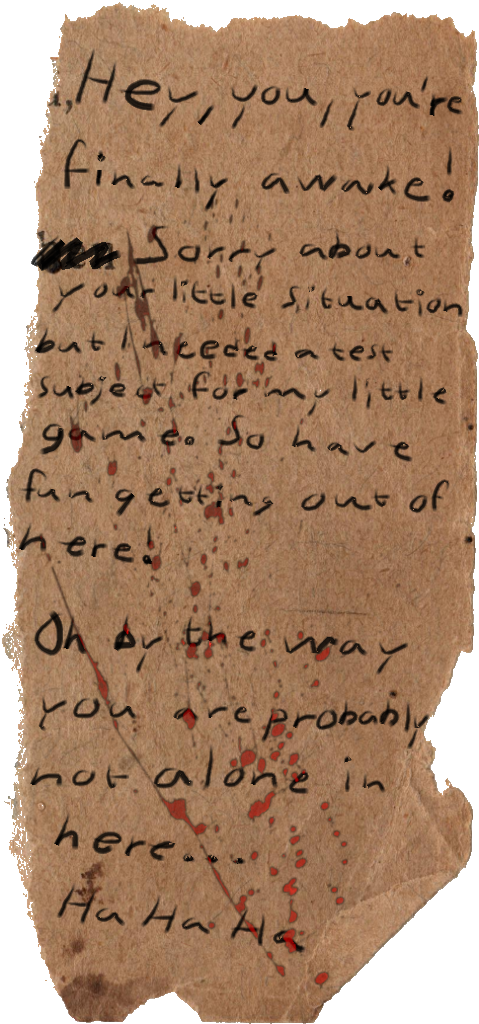 Hey, you, you're
finally awake!
Sorry about
your little situation
but I needed a test
subject for my little
game. So have
fun getting out of
here!
Oh by the way
you are probably
not alone in
here...
Ha Ha Ha